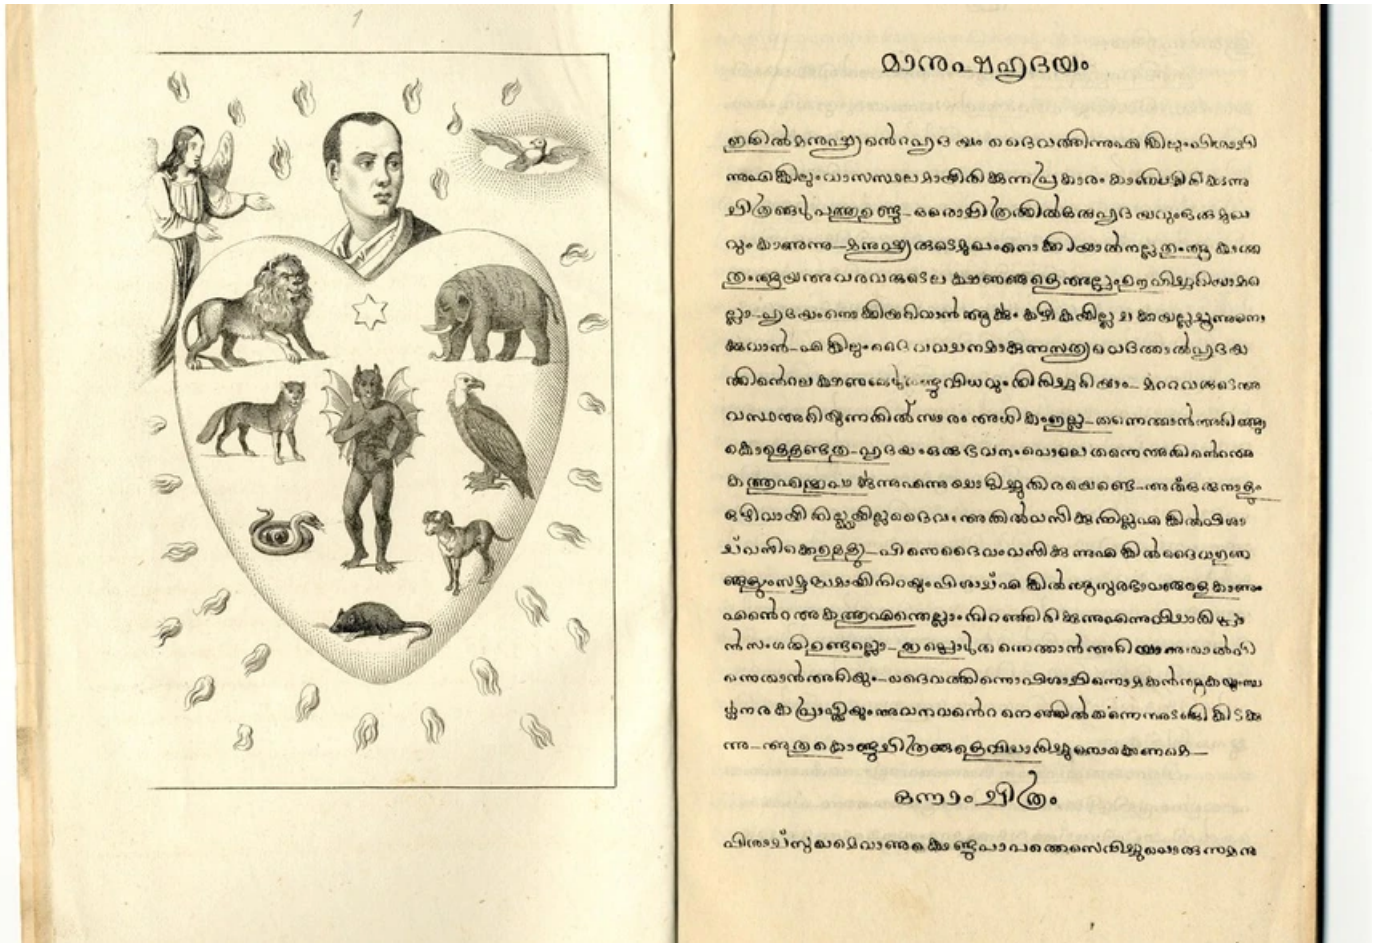 1
മാനുഷഹൃദയം
ഇതിൽ മനുഷ്യന്റെ ഹൃദയം ദൈവത്തിന്നു എങ്കിലും പിശാചി
ന്നു എങ്കിലും വാസസ്ഥലമായിരിക്കുന്ന പ്രകാരം കാണ്മാൻ
ചിത്രങ്ങൾ പത്തു ഉണ്ടു— ഒരൊ ചിത്രത്തിൽ ഒരു ഹൃദയവും ഒരു മുഖ
വും കാണുന്നു— മനുഷ്യരുടെ മുഖം നൊക്കിയാൽ നല്ലതം
അവരവരുടെ ലക്ഷണങ്ങളെ അല്പം ഊഹിച്ചറിയാമ
ല്ലൊ— ഹൃദയം നൊക്കി അറിവാൻ കഴികയില്ല
ക്കുവാൻ— എങ്കിലും ദൈവവചനമാകുന്ന സത്യവെദത്താൽ ഹൃദയ
ത്തിന്റെ ലക്ഷണം വിധവും തിരിച്ചറിയാം— മറ്റവരുടെ അ
വസ്ഥ അറിയുന്നതിൽ സാരം അധികം ഇല്ല— തന്നെത്താൻ അറിഞ്ഞു
കൊള്ളെണ്ടതു— ഹൃദയം ഒരു ഭവനം പൊലെ തന്നെ അതിന്റെ അ
കത്തു എന്നു ചൊദിച്ചു തിരയെണ്ടെ— അത് ഒരു നാളും
ഒഴിവായി നില്ക്കയില്ല ദൈവം അതിൽ വസിക്കുന്നില്ല എങ്കിൽ പിശാ
ച് വസിക്കെ ഉള്ളു— പിന്നെ ദൈവം വസിക്കുന്നു എങ്കിൽ ദൈവഗുണ
ങ്ങളും നിറയും പിശാച് എങ്കിൽ ഭാവങ്ങളെ കാണും
എന്റെ അകത്തു എന്തെല്ലാം നിറഞ്ഞിരിക്കുന്നു എന്നു വിചാരിപ്പാ
ൻ സംഗതി ഉണ്ടല്ലൊ— ഇപ്പൊൾ തന്നെത്താൻ അറിയാഞ്ഞാൽ പി
ന്നെ താൻ അറിയും— ദൈവത്തിന്നൊ പിശാചിന്നൊ മകൻ
നരകപ്രാപ്തിയും അവനവന്റെ നെഞ്ഞിൽ തന്നെ അടങ്ങി കിടക്കു
ന്നു— അതുകൊണ്ടു ചിത്രങ്ങളെ വിചാരിച്ചു നൊക്കെണമെ—
ഒന്നാം ചിത്രം
പിശാച് സ്വയമെ വാണുകൊണ്ടു പാപത്തെ സെവിച്ചു പൊരുന്ന മനു